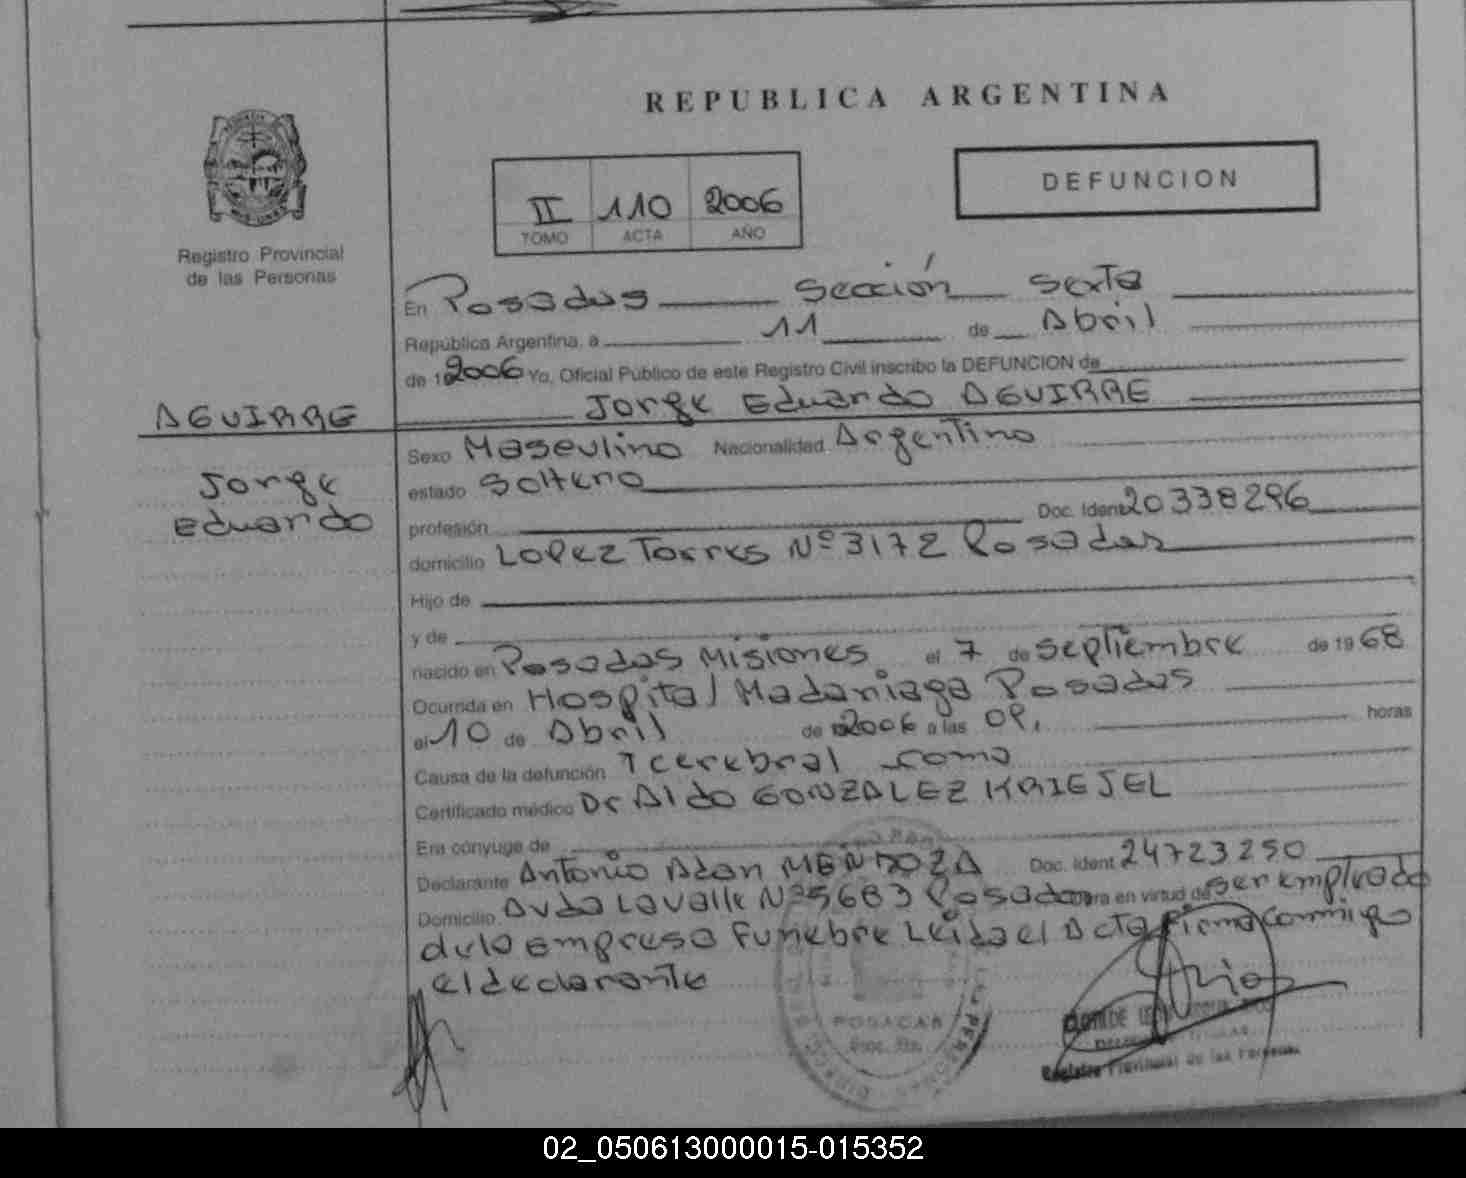 REPUBLICA ARGENTINA
DEFUNCION
II 110 2006
TOMO ACTA AÑO
Registro Provincial
de las Personas
En Posadas Sección Sexta
República Argentina, a 11 de Abril
de 2006 Yo, Oficial Público de este Registro Civil inscribo la DEFUNCION de
Jorge Eduardo AGUIRRE
AGUIRRE
Jorge
Eduardo
Sexo Masculino Nacionalidad Argentino
estado Soltero
profesión Doc. Ident 20338296
domicilio Lopez Torres Nº 3172 Posadas
Hijo de
y de
nacido en Posadas Misiones el 7 de septiembre de 1968
Ocurrida en Hospital Madariaga Posadas
el 10 de Abril de 2006 a las 09, horas
Causa de la defunción T cerebral coma
Certificado médico Dr Aldo GONZALEZ KRIEJEL
Era cónyuge de
Declarante Antonio Adan MENDOZA Doc. Ident 24723250
Domicilio Avda Lavalle Nº 5683 Posadas en virtud de ser empleado
de la empresa Funebre Leida el Acta firma conmigo
el declarante
POSADAS
Registro Provincial de las Personas
02_050613000015-015352